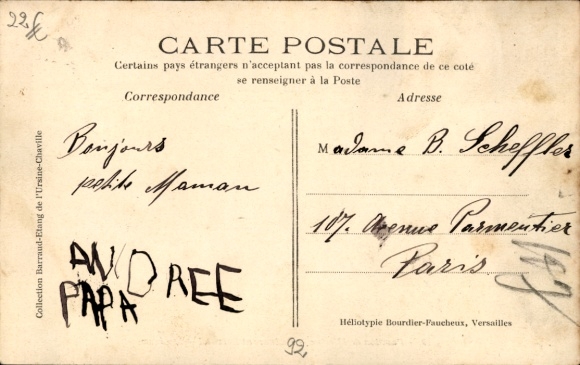 CARTE POSTALE
Certains pays étrangers n'acceptant pas la correspondance de ce coté
se renseigner à la Poste
Correspondance
Adresse
Collection Barraud-Etang de l'Ursine-Chaville
Bonjours
petite Maman
ANDREE
PAPA
Madame B. Scheffler
107. Avenue Parmentier
Paris
Héliotypie Bourdier-Faucheux, Versailles
92